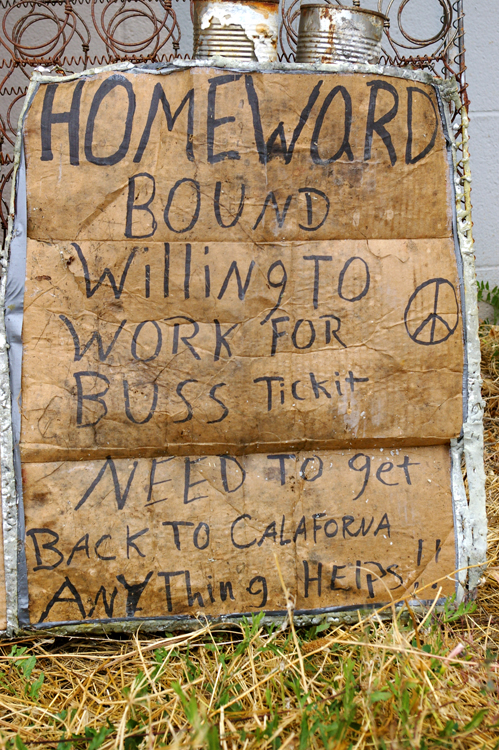 HOMEWARD
BOUND
WilliNg TO
WORK FOR
BUSS TickiT
NEED To get
BACK TO CALAFORNA
ANYThing HElPS!!